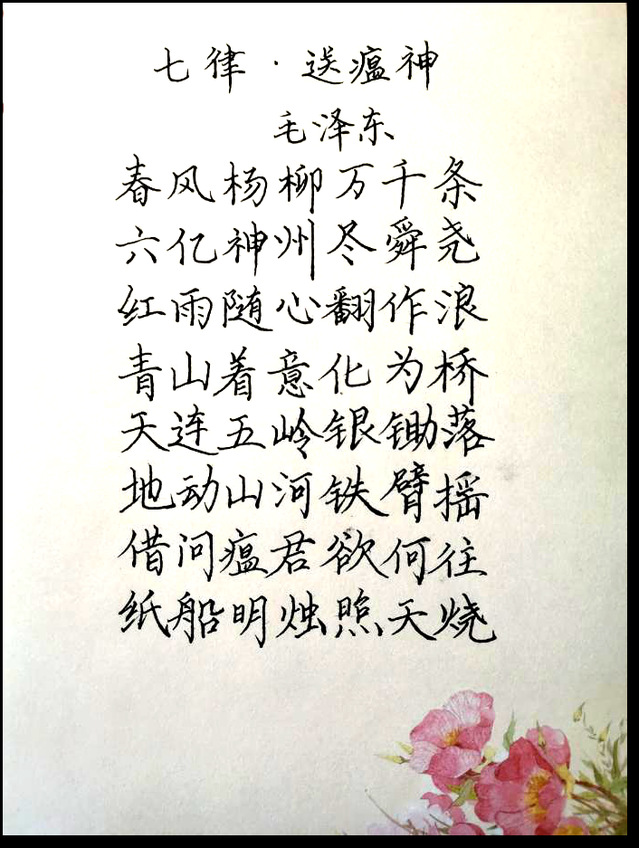 七律·送瘟神
毛泽东
春风杨柳万千条
六亿神州尽舜尧
红雨随心翻作浪
青山着意化为桥
天连五岭银锄落
地动山河铁臂摇
借问瘟君欲何往
纸船明烛照天烧